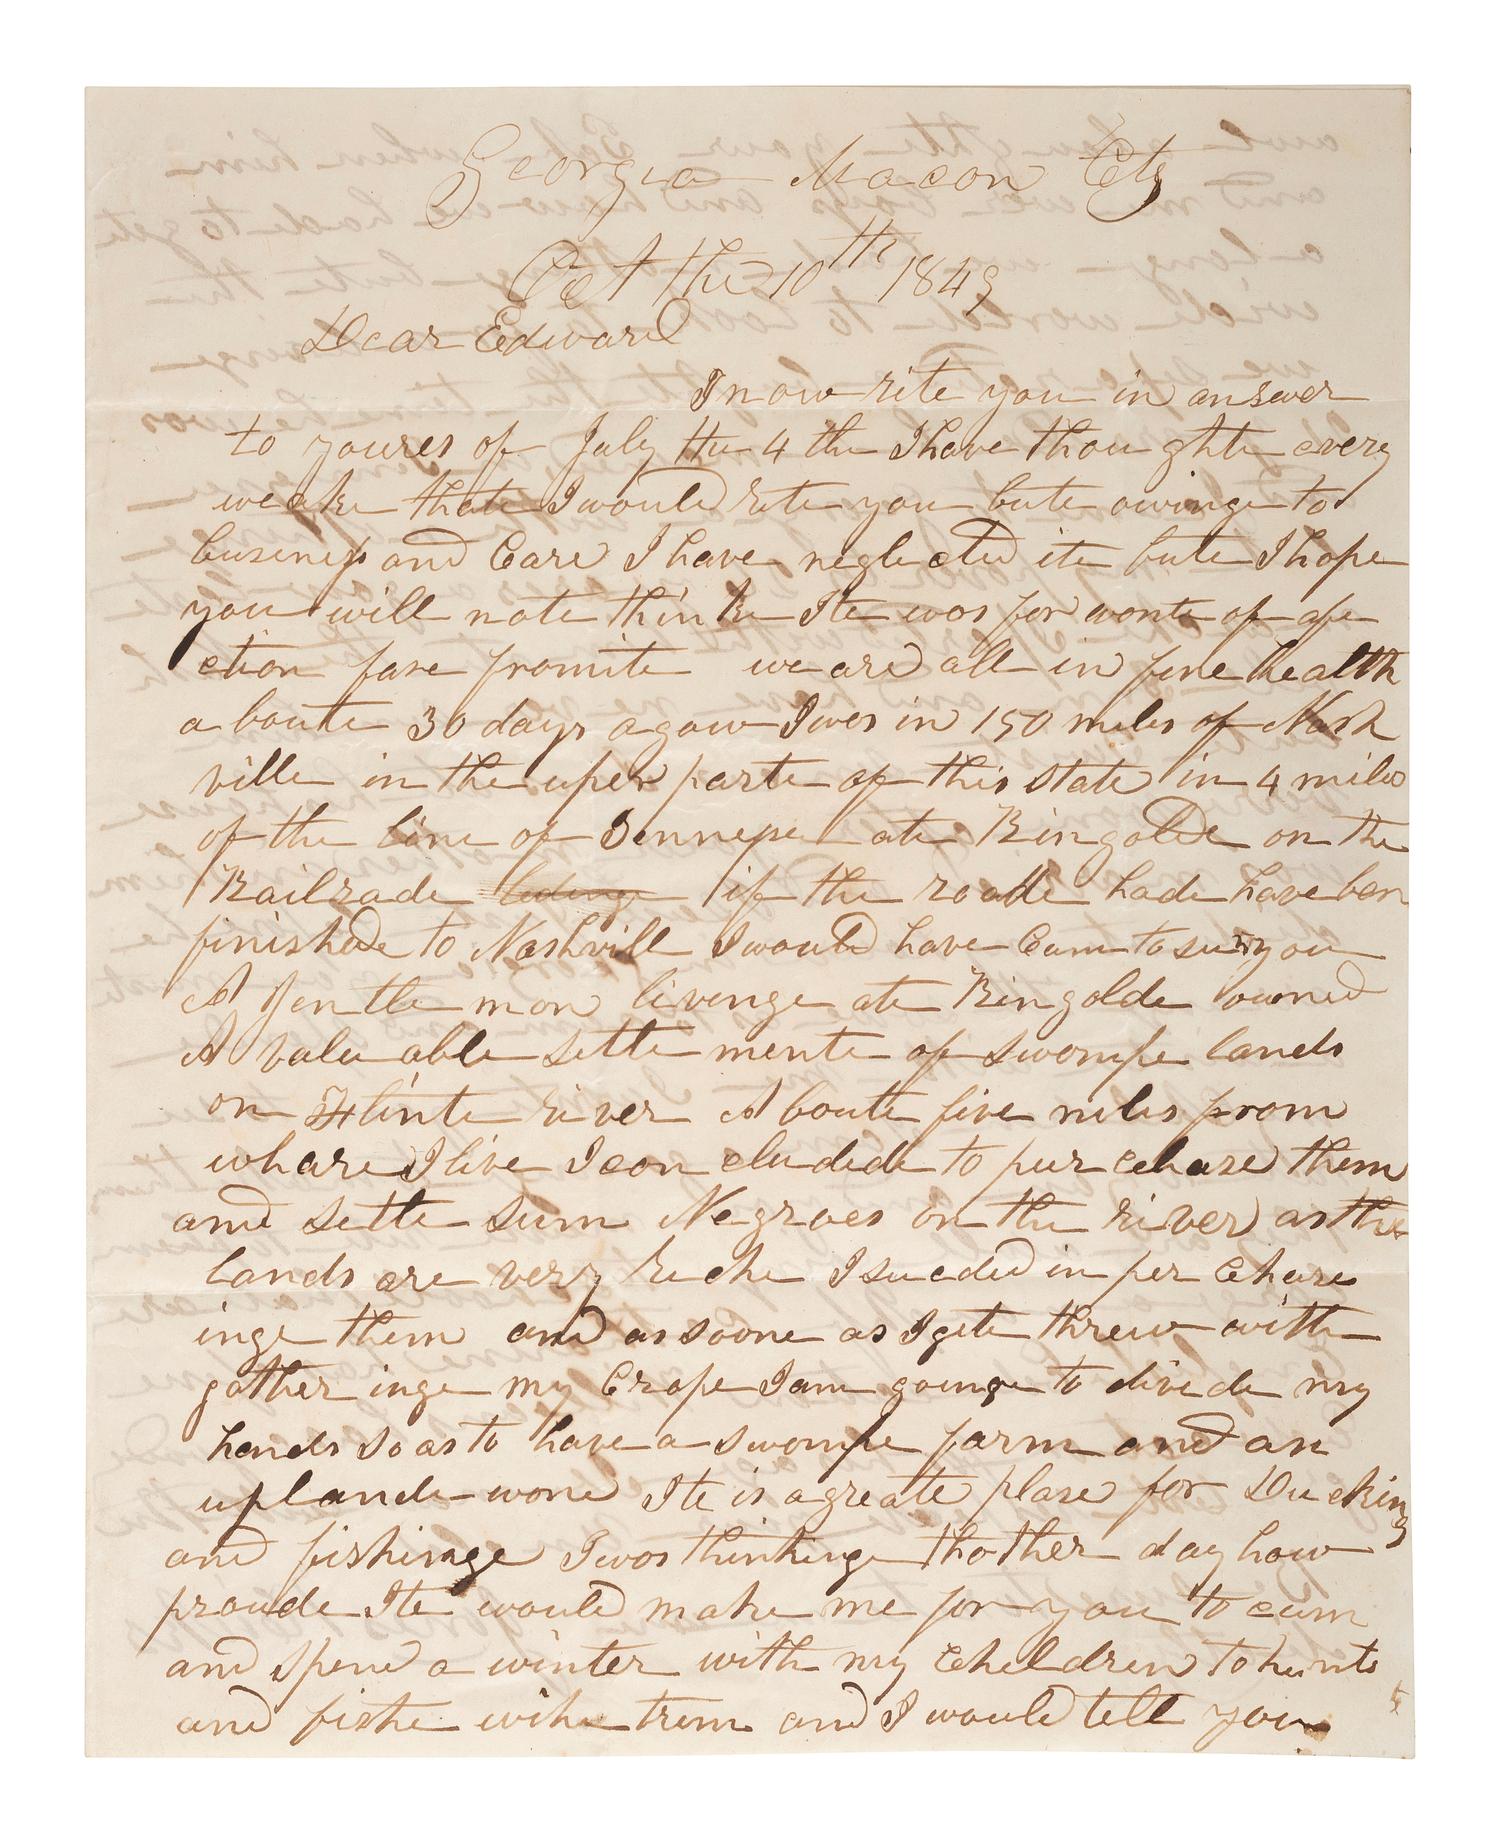 Georgia Macon Cty
Oct the 10th 1849
Dear Edward
I now rite you in answer
to youres of July the 4 the I have thoughte every
weake thate I would rite you bute owinge to
business and Care I have neglected ite bute I hope
you will note thinke Ite wos for wonte of afe
ction fare fromite we are all in fine health
a boute 30 days agow I wos in 150 miles of Nash
ville in the uper parte of this state in 4 miles
of the line of Tennessee ate Ringolde on the
Railrade if the roade hade have ben
finishede to Nashvill I would have Cum to see you
A Jentle mon livenge ate Ringolde owned
A valu able settle mente of swompe lands
on Flinte river A boute five miles from
whare I live I con cludede to pur cehase them
and settle sum Negroes on the river as the
lands are very riche I suceded in per Chase
inge them and as soone as I gete threw with
gather inge my Crope I am goinge to divide my
hands so as to have a swompe farm and an
uplande wone Ite is a greate plase for Ducking
and fishinge I wos thinkinge thother day how
proude Ite would make me for you to cum
and spend a winter with my Cehildren to hunte
and fishe withe them and I would tell you